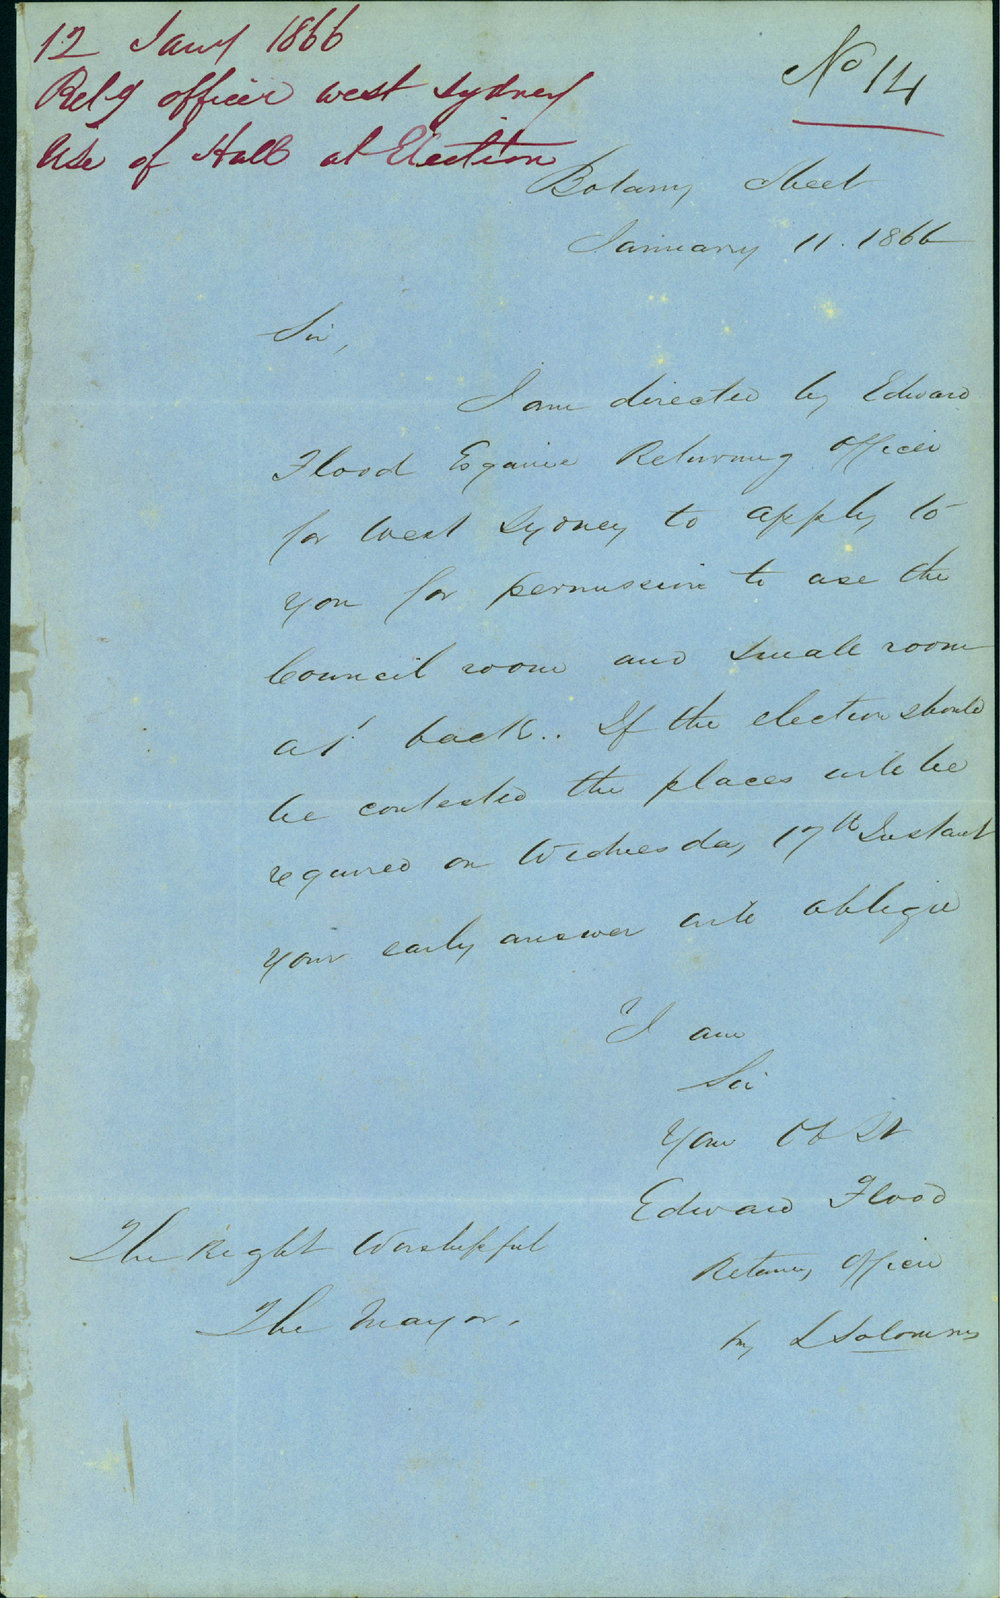 12 Jany 1866
Retg officer west Sydney
Use of Hall at Election
No 14
Botany Street
January 11. 1866
Sir,
I am directed by Edward
Flood Esquire Returning Officer
for West Sydney to apply to
you for permission to use the
Council room and small room
at back.. If the election should
be contested the places will be
required on Wednesday 17th Instant
your early answer will oblige
I am
Sir
Your Ob St
Edward Flood
Returning Officer
by L Solomons
The Right Worshipful
The Mayor.